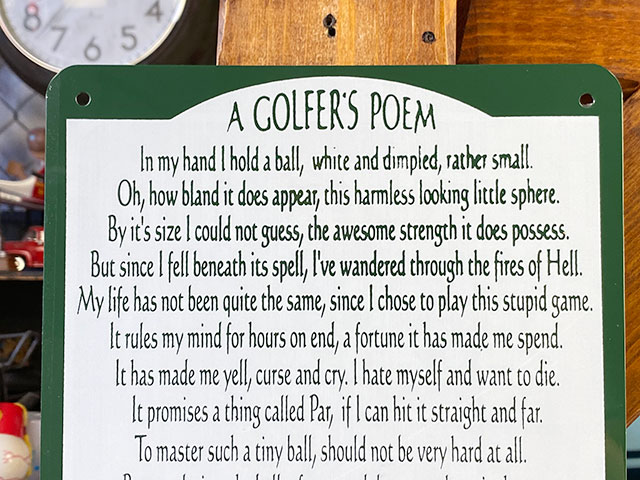 8 7 6 5 4
A GOLFER'S POEM
In my hand I hold a ball, white and dimpled, rather small.
Oh, how bland it does appear, this harmless looking little sphere.
By it's size I could not guess, the awesome strength it does possess.
But since I fell beneath its spell, I've wandered through the fires of Hell.
My life has not been quite the same, since I chose to play this stupid game.
It rules my mind for hours on end, a fortune it has made me spend.
It has made me yell, curse and cry. I hate myself and want to die.
It promises a thing called Par, if I can hit it straight and far.
To master such a tiny ball, should not be very hard at all.